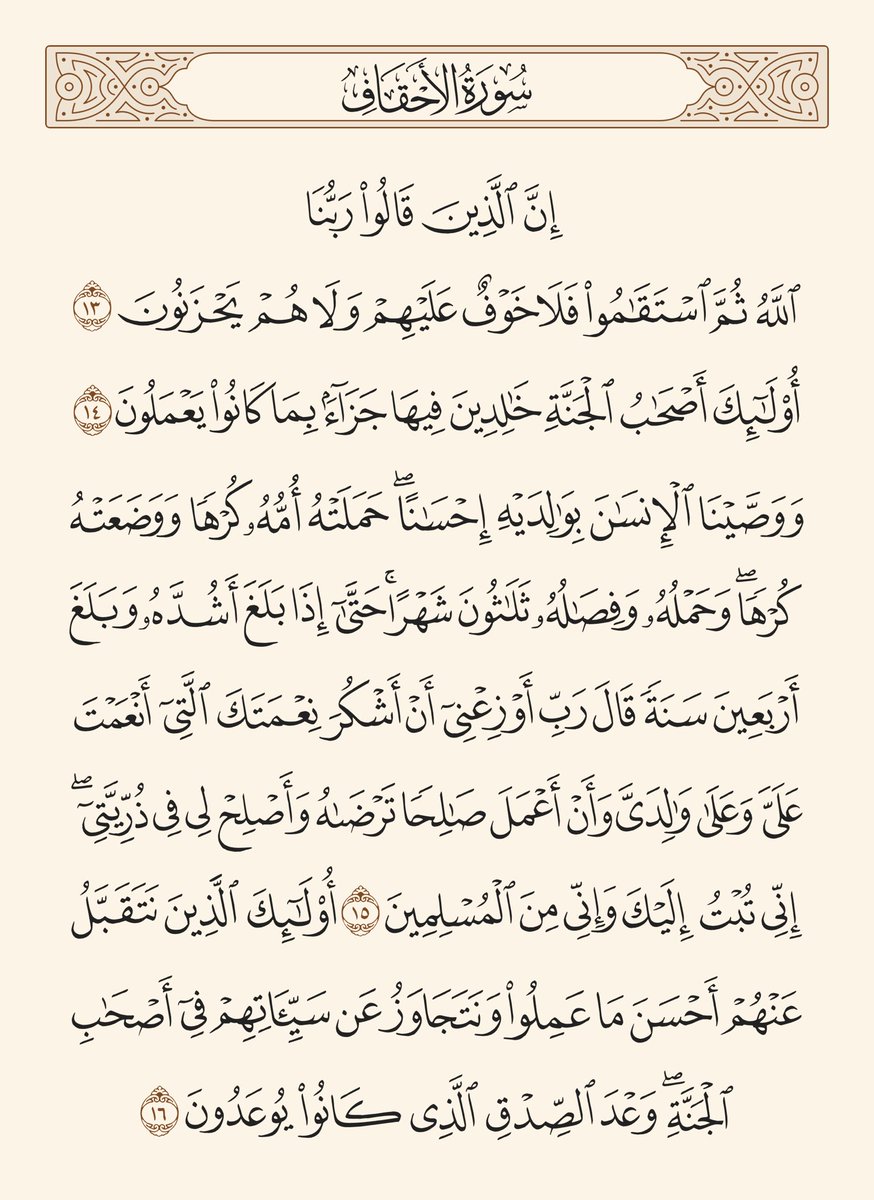 سُورَةُ الأَحْقَافِ
إِنَّ ٱلَّذِينَ قَالُوا۟ رَبُّنَا
ٱللَّهُ ثُمَّ ٱسْتَقَـٰمُوا۟ فَلَا خَوْفٌ عَلَيْهِمْ وَلَا هُمْ يَحْزَنُونَ ١٣
أُو۟لَـٰٓئِكَ أَصْحَـٰبُ ٱلْجَنَّةِ خَـٰلِدِينَ فِيهَا جَزَآءًۢ بِمَا كَانُوا۟ يَعْمَلُونَ ١٤
وَوَصَّيْنَا ٱلْإِنسَـٰنَ بِوَٰلِدَيْهِ إِحْسَـٰنًا ۖ حَمَلَتْهُ أُمُّهُۥ كُرْهًا وَوَضَعَتْهُ
كُرْهًا ۖ وَحَمْلُهُۥ وَفِصَـٰلُهُۥ ثَلَـٰثُونَ شَهْرًا ۚ حَتَّىٰٓ إِذَا بَلَغَ أَشُدَّهُۥ وَبَلَغَ
أَرْبَعِينَ سَنَةً قَالَ رَبِّ أَوْزِعْنِىٓ أَنْ أَشْكُرَ نِعْمَتَكَ ٱلَّتِىٓ أَنْعَمْتَ
عَلَىَّ وَعَلَىٰ وَٰلِدَىَّ وَأَنْ أَعْمَلَ صَـٰلِحًا تَرْضَىٰهُ وَأَصْلِحْ لِى فِى ذُرِّيَّتِىٓ ۖ
إِنِّى تُبْتُ إِلَيْكَ وَإِنِّى مِنَ ٱلْمُسْلِمِينَ ١٥ أُو۟لَـٰٓئِكَ ٱلَّذِينَ نَتَقَبَّلُ
عَنْهُمْ أَحْسَنَ مَا عَمِلُوا۟ وَنَتَجَاوَزُ عَن سَيِّـَٔاتِهِمْ فِىٓ أَصْحَـٰبِ
ٱلْجَنَّةِ ۖ وَعْدَ ٱلصِّدْقِ ٱلَّذِى كَانُوا۟ يُوعَدُونَ ١٦